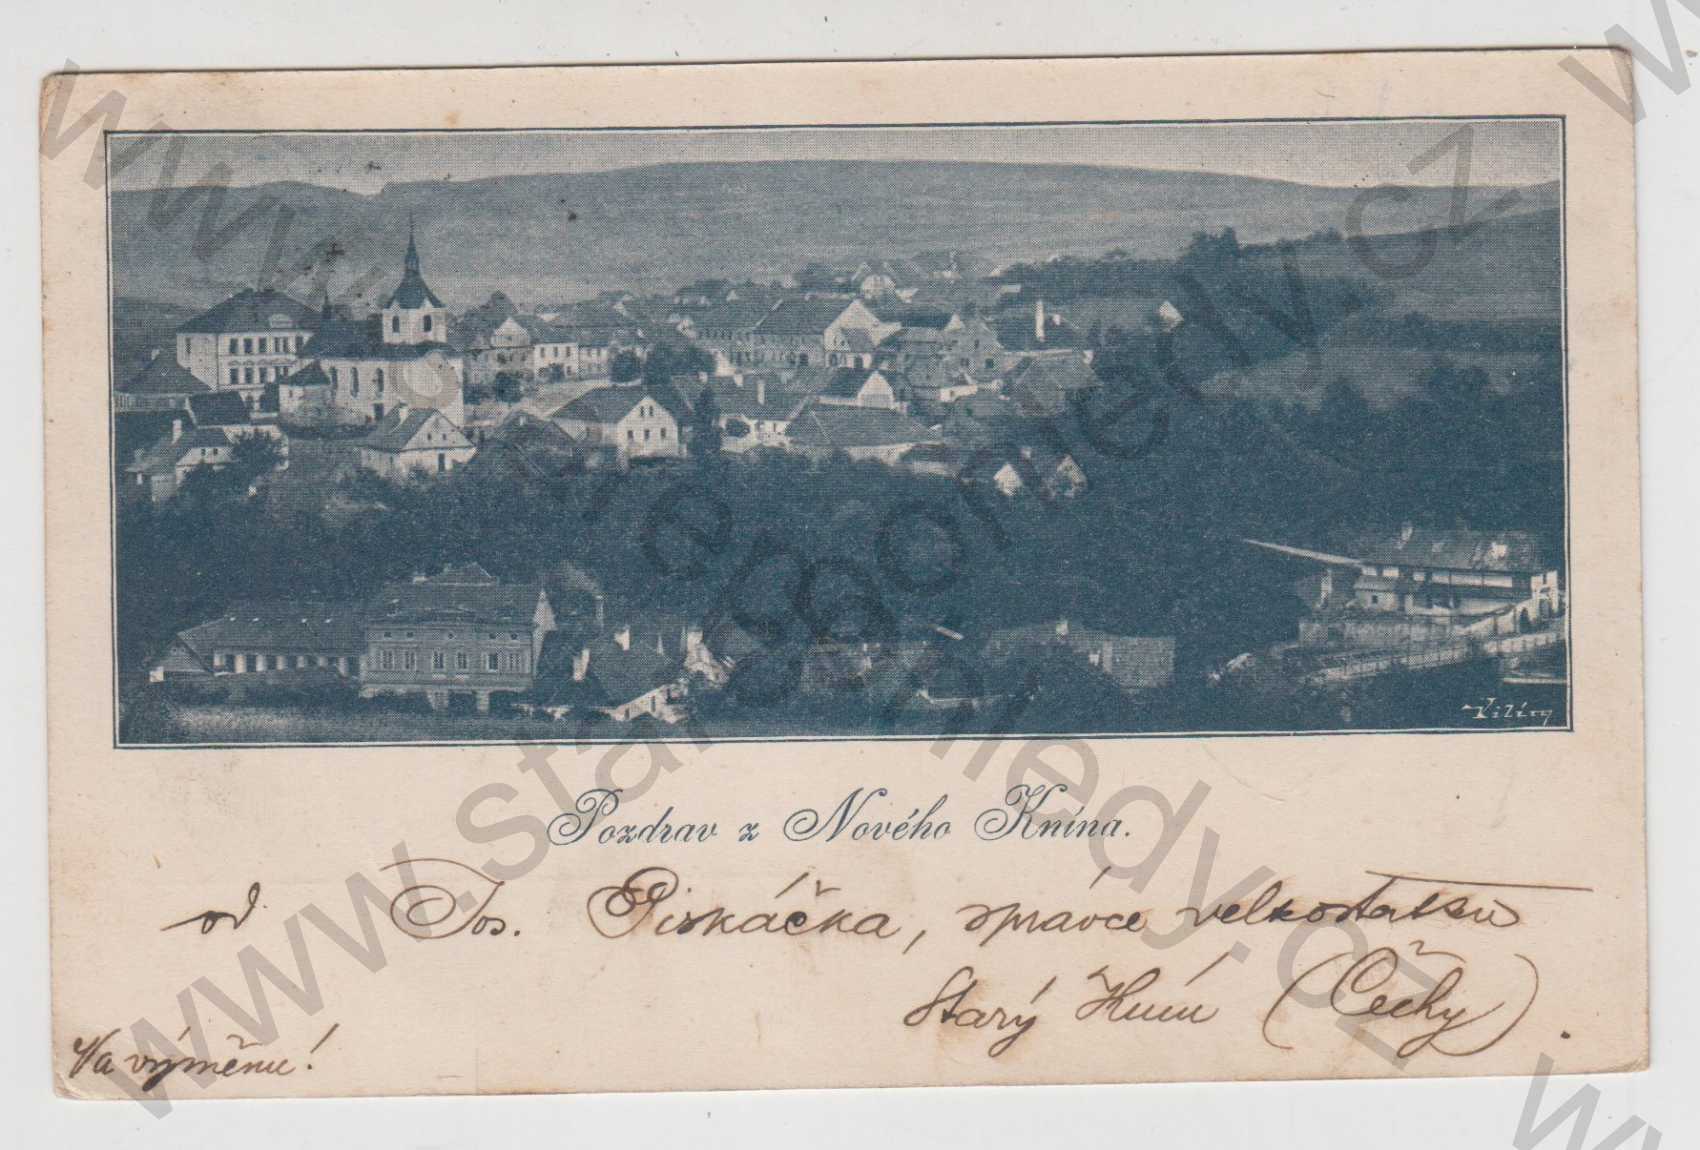 Vilím
Pozdrav z Nového Knína.
od Jos. Piskáčka, správce velkostatku
Starý Knín (Čechy).
Na výměnu!
www.starepohledy.cz
www.starepohledy.cz